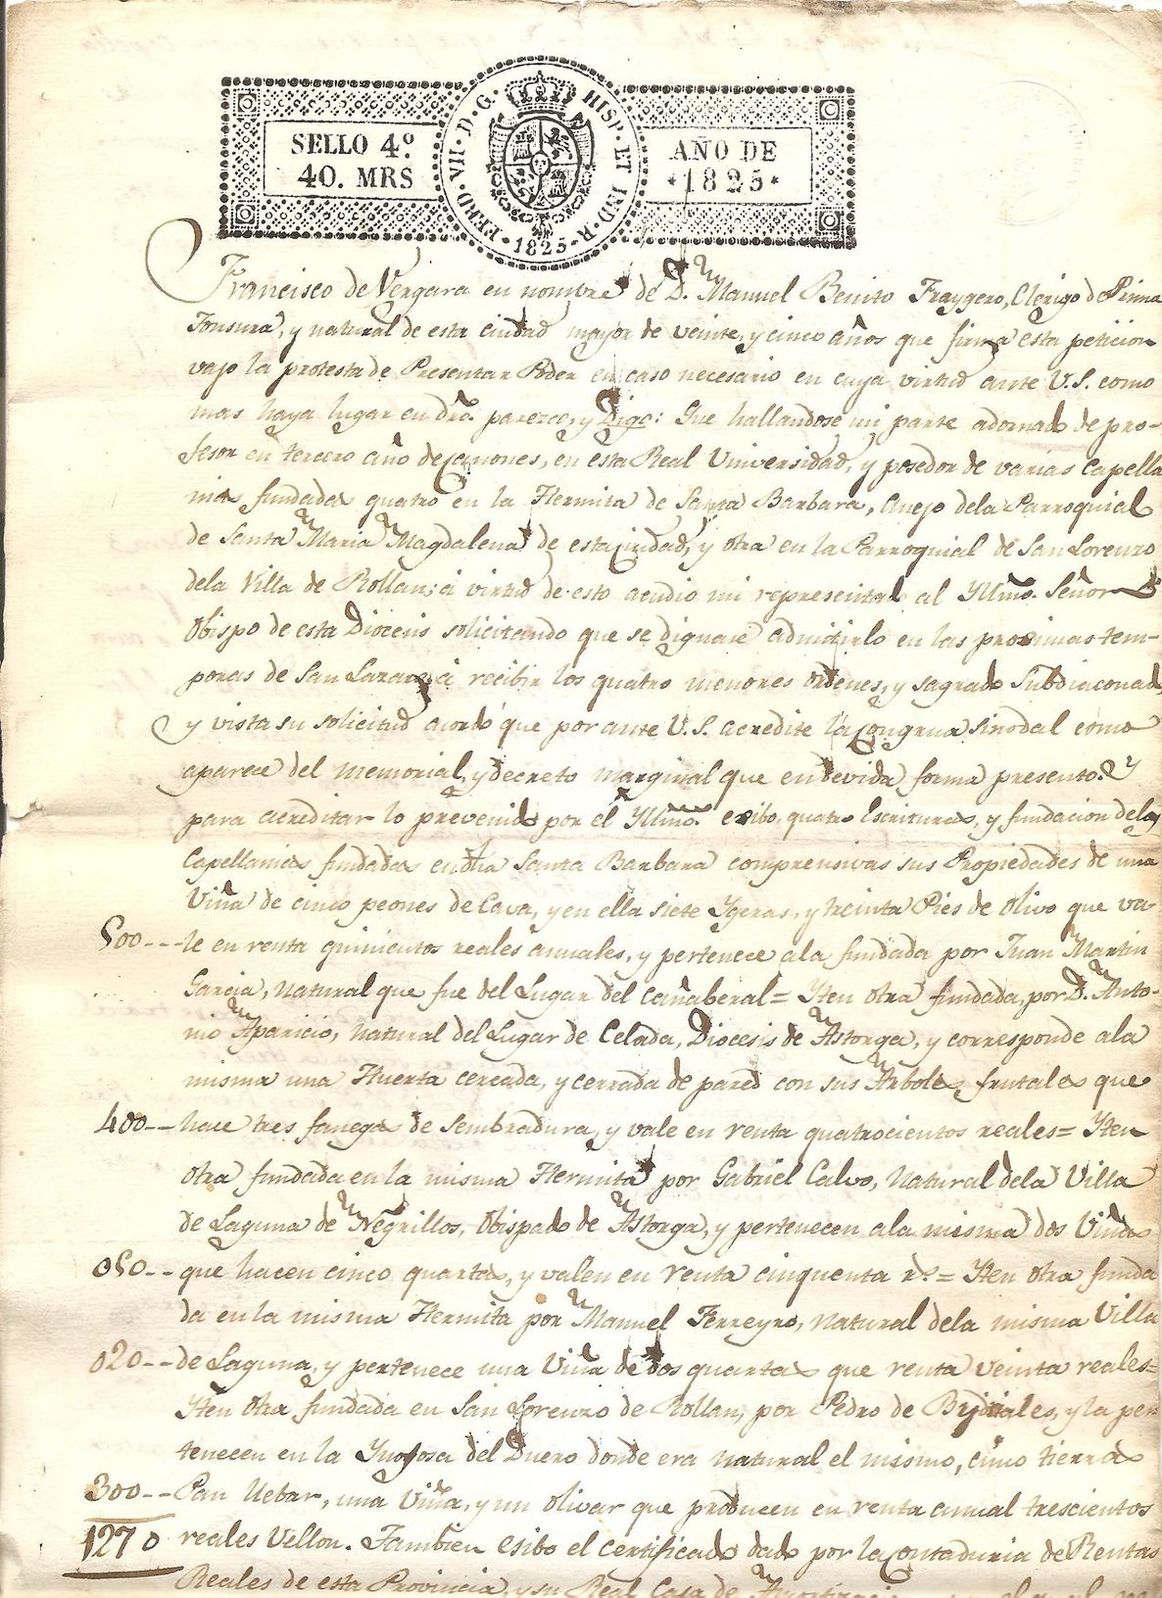 SELLO 4º
40. MRS
FERD · VII · D · G · HISP · ET IND · R · 1825
AÑO DE
*1825*
Francisco de Vergara en nombre de D. Manuel Benito Fraygero, Clerigo de Prima
Tonsura, y natural de esta ciudad mayor de veinte, y cinco años que firma esta peticion
vajo la protesta de Presentar Poder en caso necesario en cuya virtud ante V.S. como
mas haya lugar en dro. parezco, y Digo: Que hallandose mi parte adornado de pro-
fesor en tercero año de Canones, en esta Real Universidad, y posedor de varias Capella
nias fundadas quatro en la Hermita de Santa Barbara, Anejo dela Parroquial
de Santa Maria Magdalena de esta ciudad, y otra en la Parroquial de San Lorenzo
dela Villa de Rollan; á virtud de esto acudio mi representado al Yllmo. Señor
Obispo de esta Diocesis solicitando que se dignase admitirlo en las proximas tem-
poras de San Lazaro á recibir los quatro menores ordenes, y sagrado Subdiaconado,
y vista su solicitud acordó que por ante V.S. acredite la Congrua sinodal como
aparece del memorial, y decreto marginal que en devida forma presento. Y
para acreditar lo prevenido por el Yllmo. exibo, quatro Escrituras, y fundacion delas
Capellanias fundadas en dha Santa Barbara comprensivas sus Propiedades de una
Viña de cinco peones de Cava, y en ella siete Ygeras, y treinta Pies de olivo que va-
500---le en renta quinientos reales annales, y pertenece ala fundada por Juan Martin
Garcia, natural que fue del Lugar del Cañaberal= Yten otra fundada, por D. Anto-
nio Aparicio, natural del Lugar de Celada, Diocesis de Astorga, y corresponde ala
misma una Huerta cercada, y cerrada de pared con sus Arboles frutales que
400--hace tres fanegas de sembradura, y vale en renta quatrocientos reales= Yten
otra fundada en la misma Hermita por Gabriel Calvo, natural dela Villa
de Laguna de Negrillos, obispado de Astorga, y pertenecen ala misma dos Viñas
050--que hacen cinco quartas, y valen en renta cinquenta rs.= Yten otra funda
da en la misma Hermita por Manuel Ferreyro, natural dela misma Villa
020--de Laguna, y pertenece una Viña de dos quartas que renta veinta reales=
Yten otra fundada en San Lorenzo de Rollan, por Pedro de, y la per
tenecen en la Ynojosa del Duero donde era natural el mismo, cinco tierras
300--Pan llebar, una viña, y un olivar que producen en renta annal trescientos
1270 reales Vellon. Tambien esibo el certificado dado por la Contaduria de Rentas
Reales de esta Provincia, y su Real Casa de